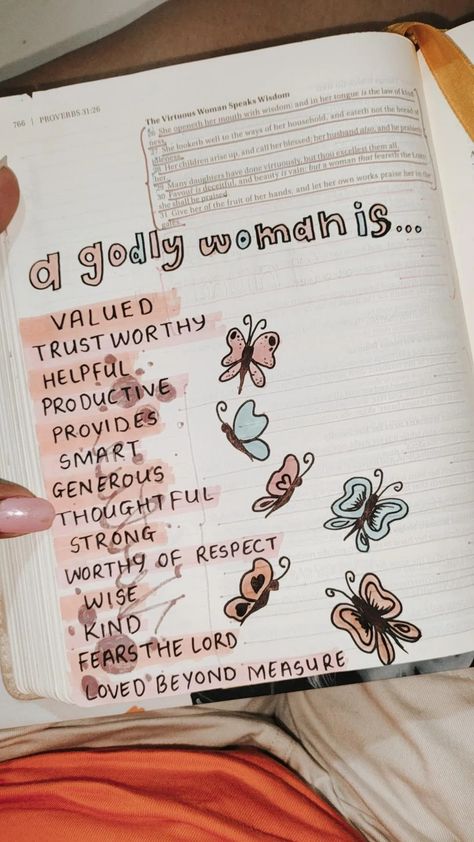 766 | PROVERBS 31:26
The Virtuous Woman Speaks Wisdom
26 She openeth her mouth with wisdom; and in her tongue is the law of kind
ness.
27 She looketh well to the ways of her household, and eateth not the bread of
idleness.
28 Her children arise up, and call her blessed; her husband also, and he praiseth
her.
29 Many daughters have done virtuously, but thou excellest them all.
30 Favour is deceitful, and beauty is vain: but a woman that feareth the LORD,
she shall be praised.
31 Give her of the fruit of her hands, and let her own works praise her in the
gates.
a godly woman is...
VALUED
TRUSTWORTHY
HELPFUL
PRODUCTIVE
PROVIDES
SMART
GENEROUS
THOUGHTFUL
STRONG
WORTHY OF RESPECT
WISE
KIND
FEARS THE LORD
LOVED BEYOND MEASURE